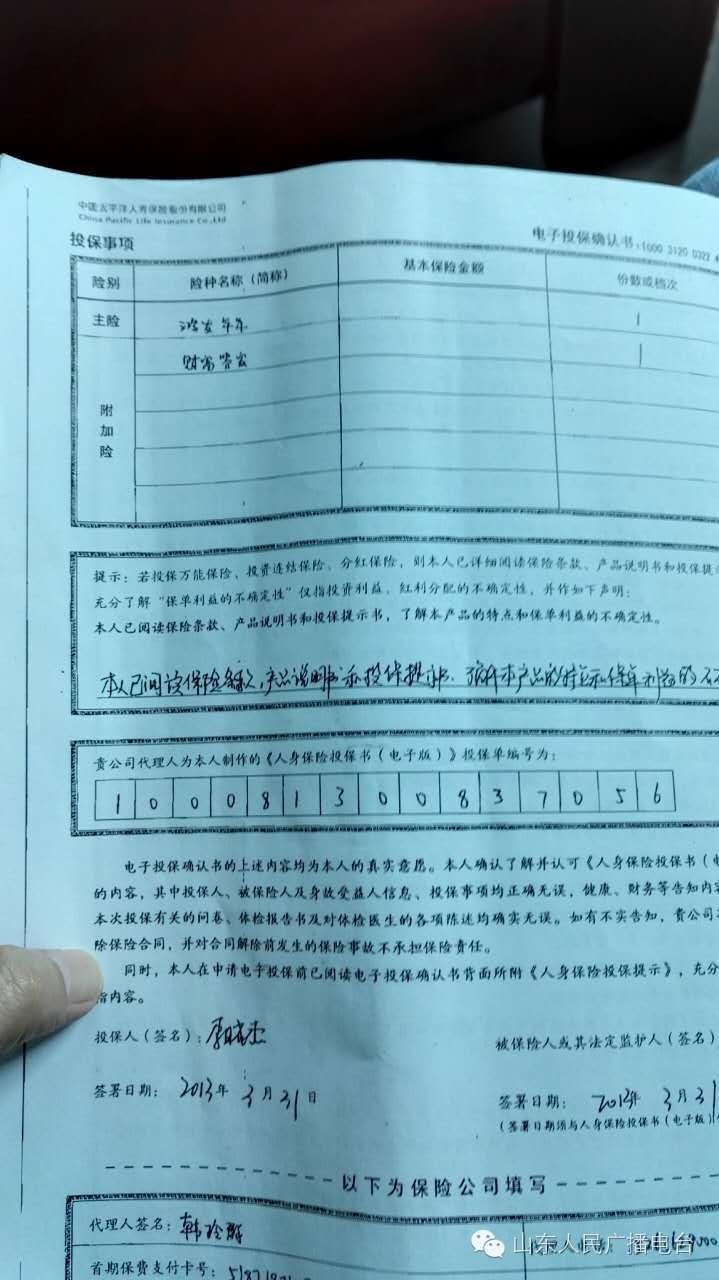 中国太平洋人寿保险股份有限公司
China Pacific Life Insurance Co.,Ltd
投保事项
电子投保确认书:1000 3120 0322 4
险别 险种名称（简称） 基本保险金额 份数或档次
主险 鸿发年年 1
财富 1
附加险
提示：若投保万能保险、投资连结保险、分红保险，则本人已详细阅读保险条款、产品说明书和投保提示
充分了解“保单利益的不确定性”仅指投资利益、红利分配的不确定性，并作如下声明：
本人已阅读保险条款、产品说明书和投保提示书，了解本产品的特点和保单利益的不确定性。
本人已阅读保险条款,产品说明书和投保提示书、了解本产品的特点和保单利益的不
贵公司代理人为本人制作的《人身保险投保书（电子版）》投保单编号为：
1 0 0 0 8 1 3 0 0 8 3 7 0 5 6
电子投保确认书的上述内容均为本人的真实意愿。本人确认了解并认可《人身保险投保书（电
的内容，其中投保人、被保险人及身故受益人信息、投保事项均正确无误，健康、财务等告知内容
本次投保有关的问卷、体检报告书及对体检医生的各项陈述均确实无误。如有不实告知，贵公司有
除保险合同，并对合同解除前发生的保险事故不承担保险责任。
同时，本人在申请电子投保前已阅读电子投保确认书背面所附《人身保险投保提示》，充分
指内容。
投保人（签名）：
被保险人或其法定监护人（签名）
签署日期： 2013年 3月31日
签署日期： 2013年 3月31
（签署日期须与人身保险投保书（电子版）
以下为保险公司填写
代理人签名： 韩玲
首期保费支付卡号：
山东人民广播电台